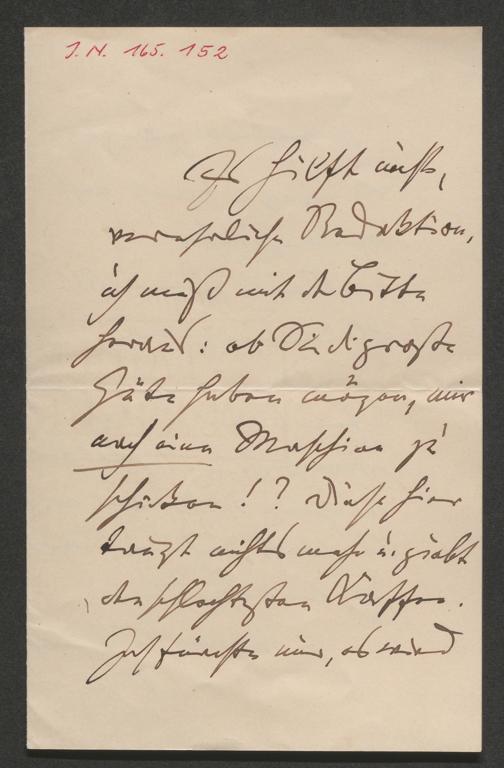 I. N. 165.152
Es hilft nichts,
verehrliche Redaktion,
ich muß mit der Bitte
heraus: ob Sie die große
Güte haben mögen, mir
noch eine Maschine zu
schicken!? Diese hier
taugt nichts mehr u. giebt
den schlechtesten Kaffee.
Ich fürchte nur, es wird